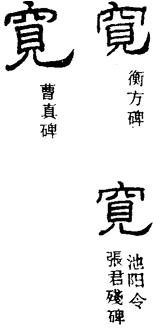 寬
衡方碑
寬
池阳令
張君殘碑
寬
曹真碑